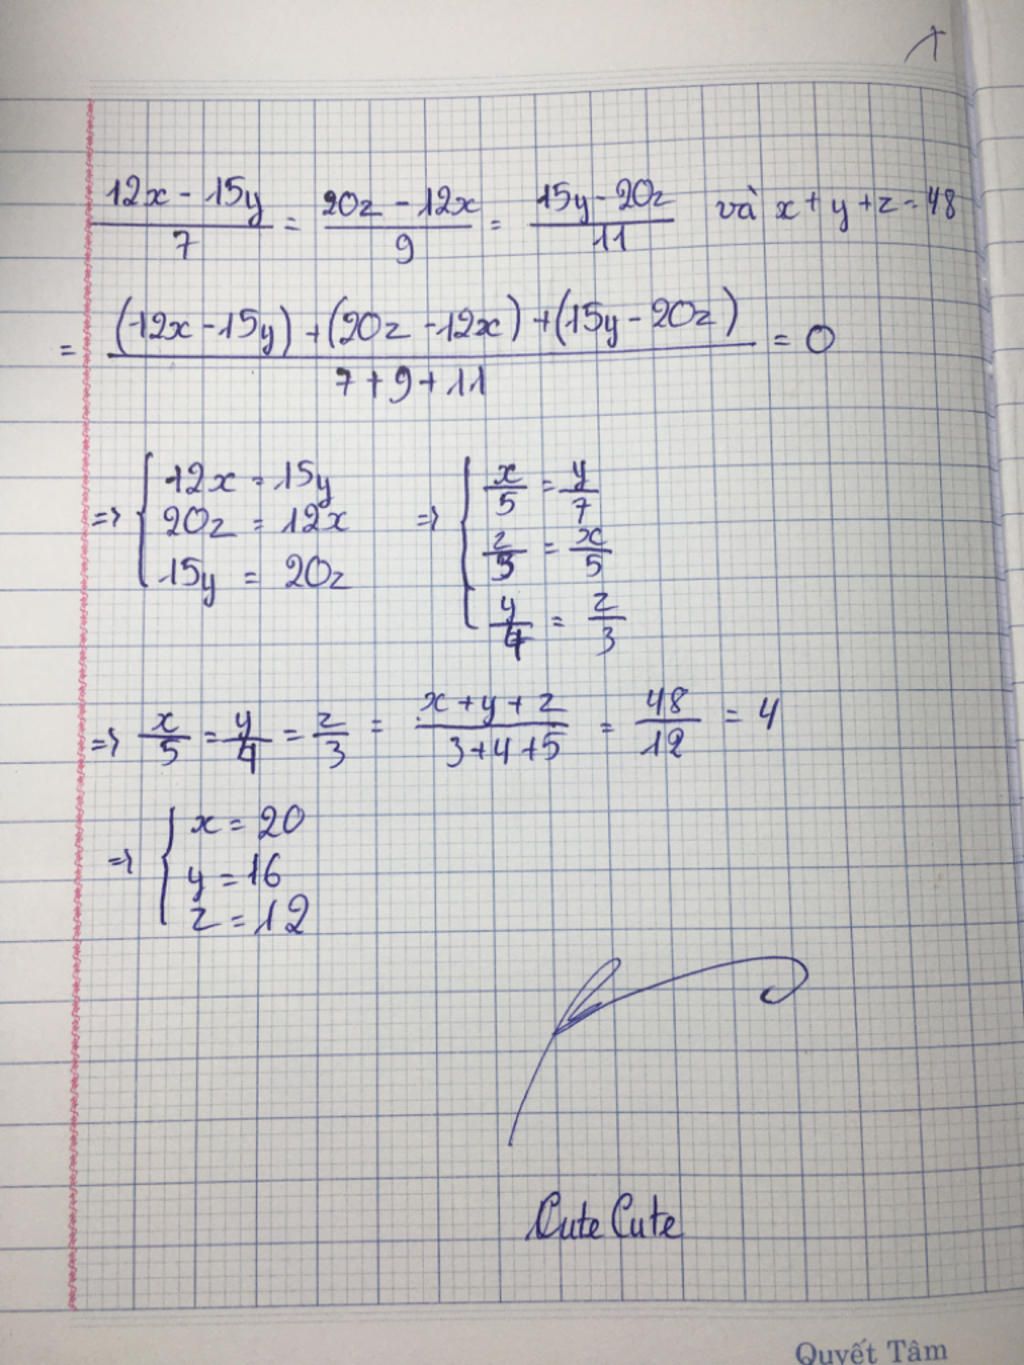 (12x - 15y)/7 = (20z - 12x)/9 = (15y - 20z)/11 và x + y + z = 48
= ((12x - 15y) + (20z - 12x) + (15y - 20z))/(7 + 9 + 11) = 0
=> { 12x = 15y => { x/5 = y/7
20z = 12x z/3 = x/5
15y = 20z y/4 = z/3
=> x/5 = y/4 = z/3 = (x + y + z)/(3 + 4 + 5) = 48/12 = 4
=> { x = 20
y = 16
z = 12
Cute Cute
Quyết Tâm